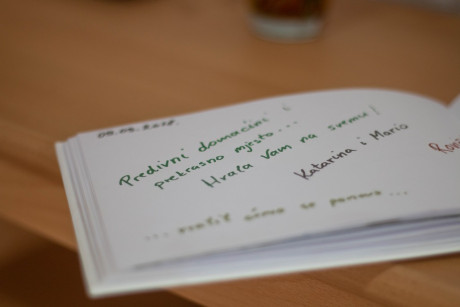 Predivni domaćini i
prekrasno mjesto...
Hvala Vam na svemu!
Katarina i Mario
... vratit ćemo se ponovo ...